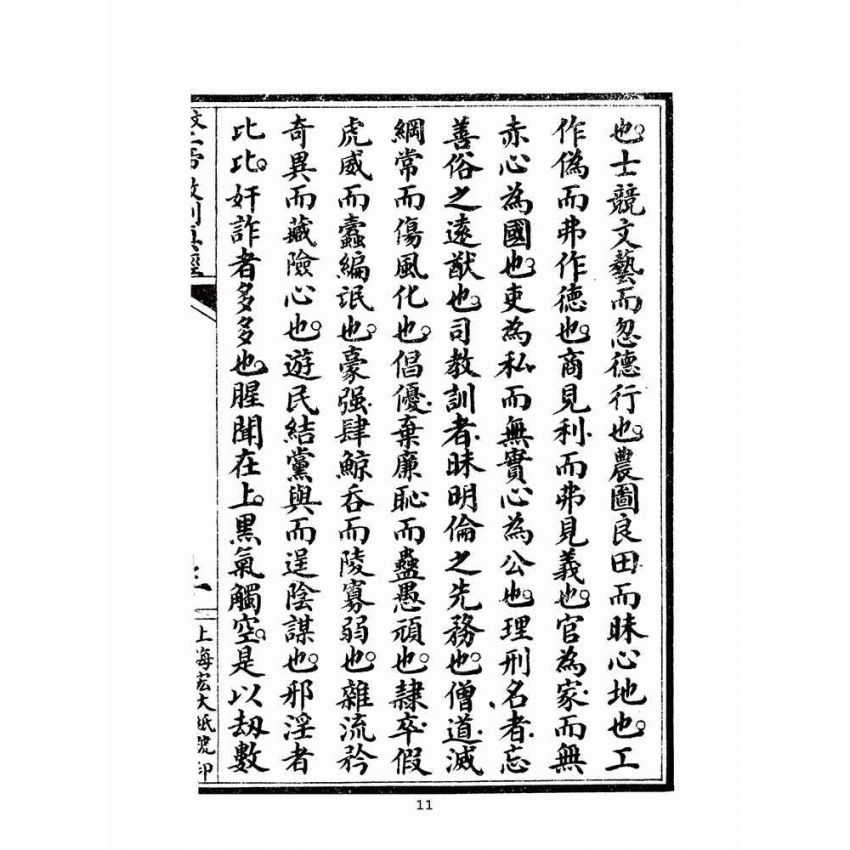 也士競文藝而忽德行也農圖良田而昧心地也工
作偽而弗作德也商見利而弗見義也官為家而無
赤心為國也吏為私而無實心為公也理刑名者忘
善俗之遠猷也司教訓者昧明倫之先務也僧道滅
綱常而傷風化也倡優棄廉恥而蠱愚頑也隸卒假
虎威而蠹編氓也豪强肆鯨吞而陵寡弱也雜流矜
奇異而藏險心也遊民結黨與而逞陰謀也邪淫者
比比奸詐者多多也腥聞在上黑氣觸空是以劫數
上海宏大紙號印
11